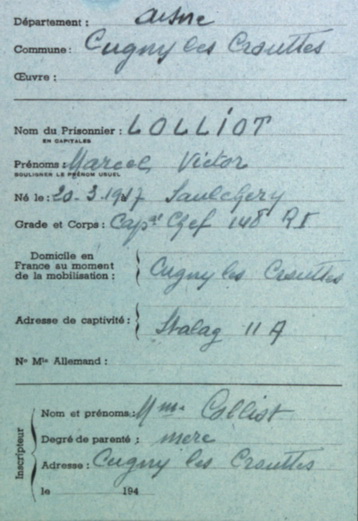 Département : aisne
Commune : Cugny les Crouttes
Œuvre :
Nom du Prisonnier : LOLLIOT
EN CAPITALES
Prénoms : Marcel Victor
SOULIGNER LE PRÉNOM USUEL
Né le : 20-3-1917 Saulchery
Grade et Corps : Capal Chef 148 RI
Domicile en
France au moment
de la mobilisation : Cugny les Crouttes
Adresse de captivité : Stalag 11 A
No Mle Allemand :
Inscripteur
Nom et prénoms : Mme Lolliot
Degré de parenté : mere
Adresse : Cugny les Crouttes
le 194